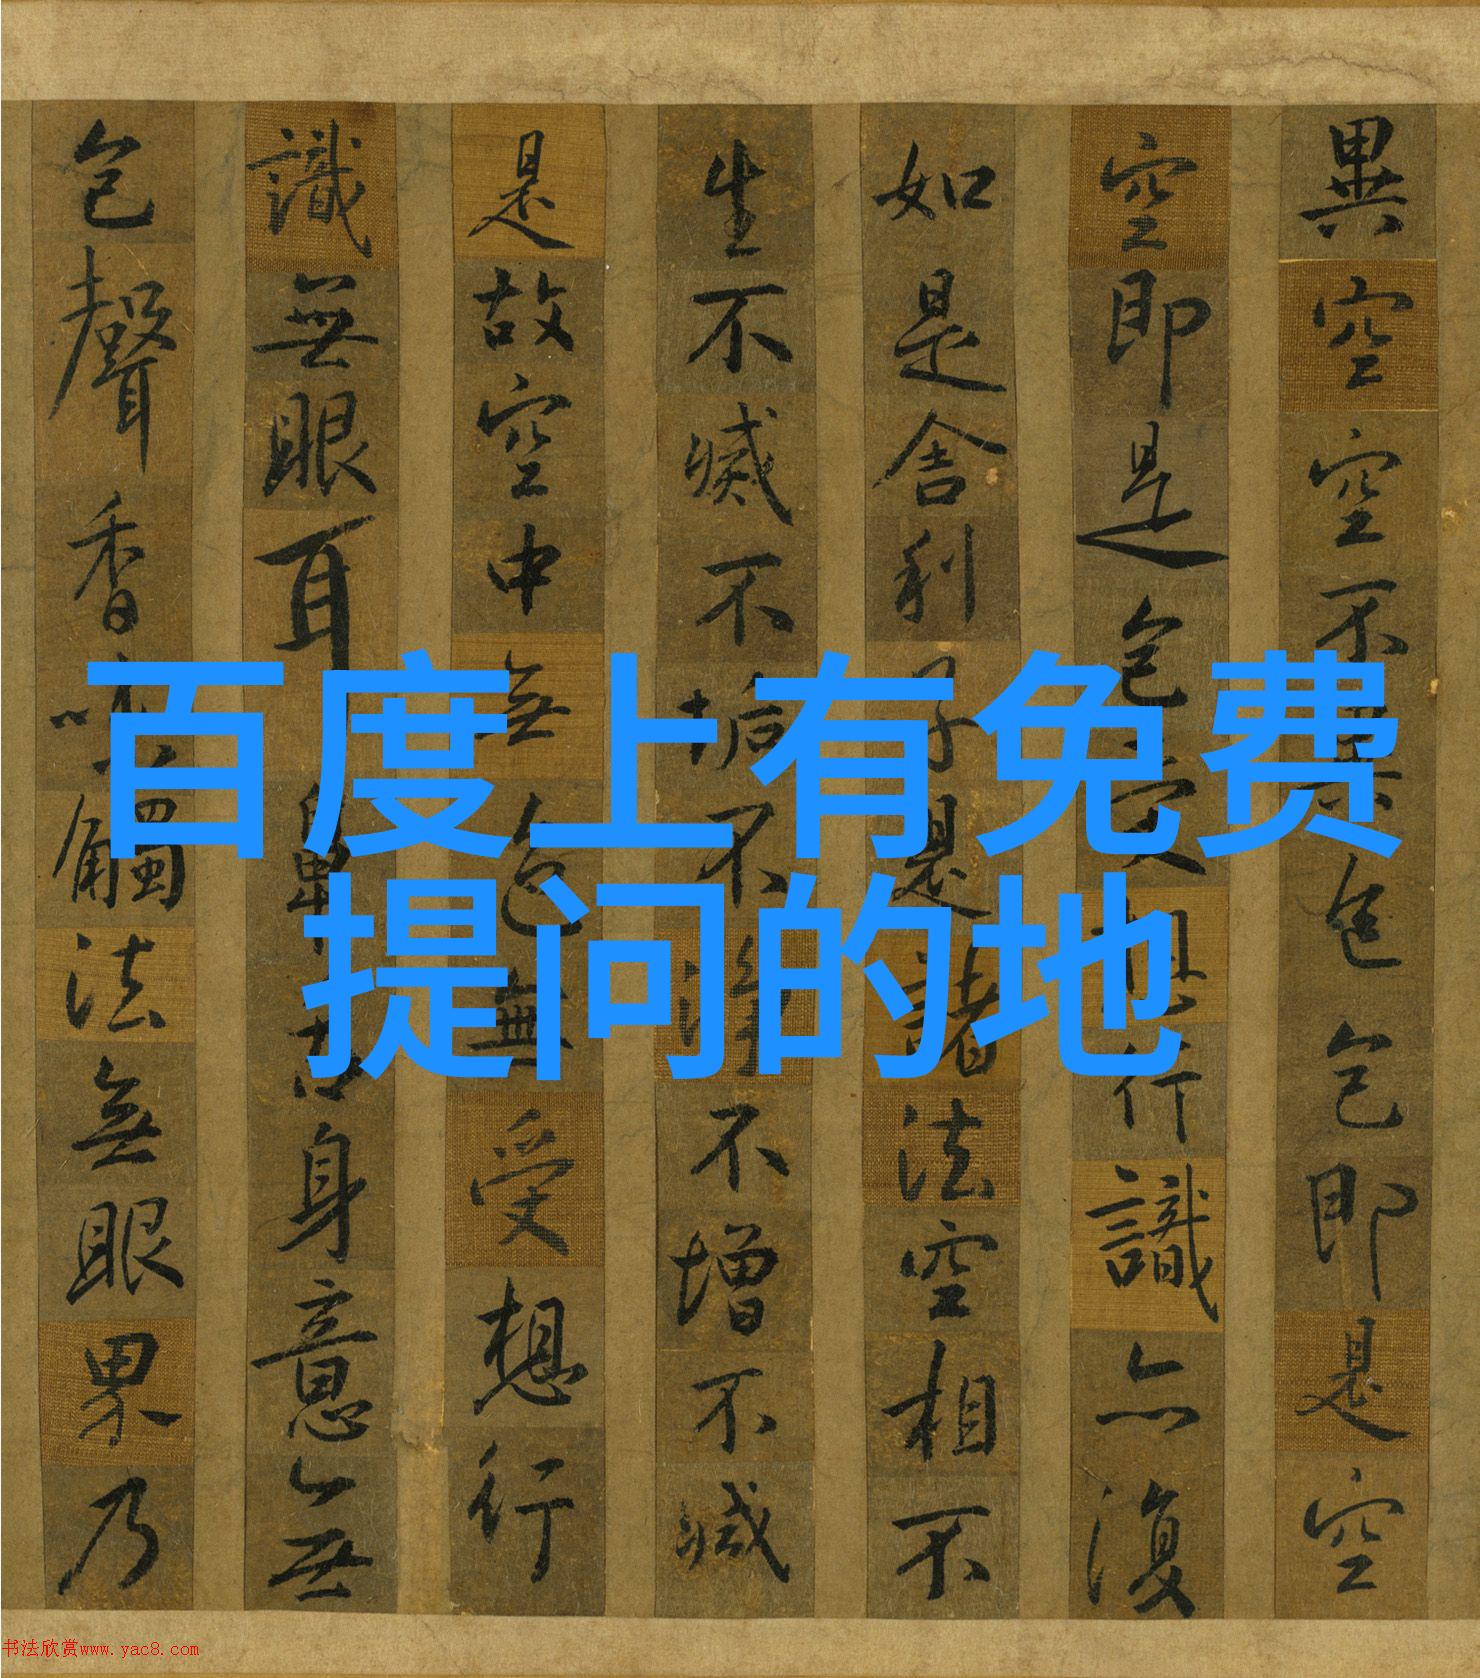 百度上有免费
提问的地
異空空不異色色即是空
空即是色受想行識亦復
如是舍利子是諸法空相不
生不滅不垢不淨不增不減
是故空中無色無受想行
識無眼耳鼻舌身意無
色聲香味觸法無眼界乃
书法欣赏www.yac8.com